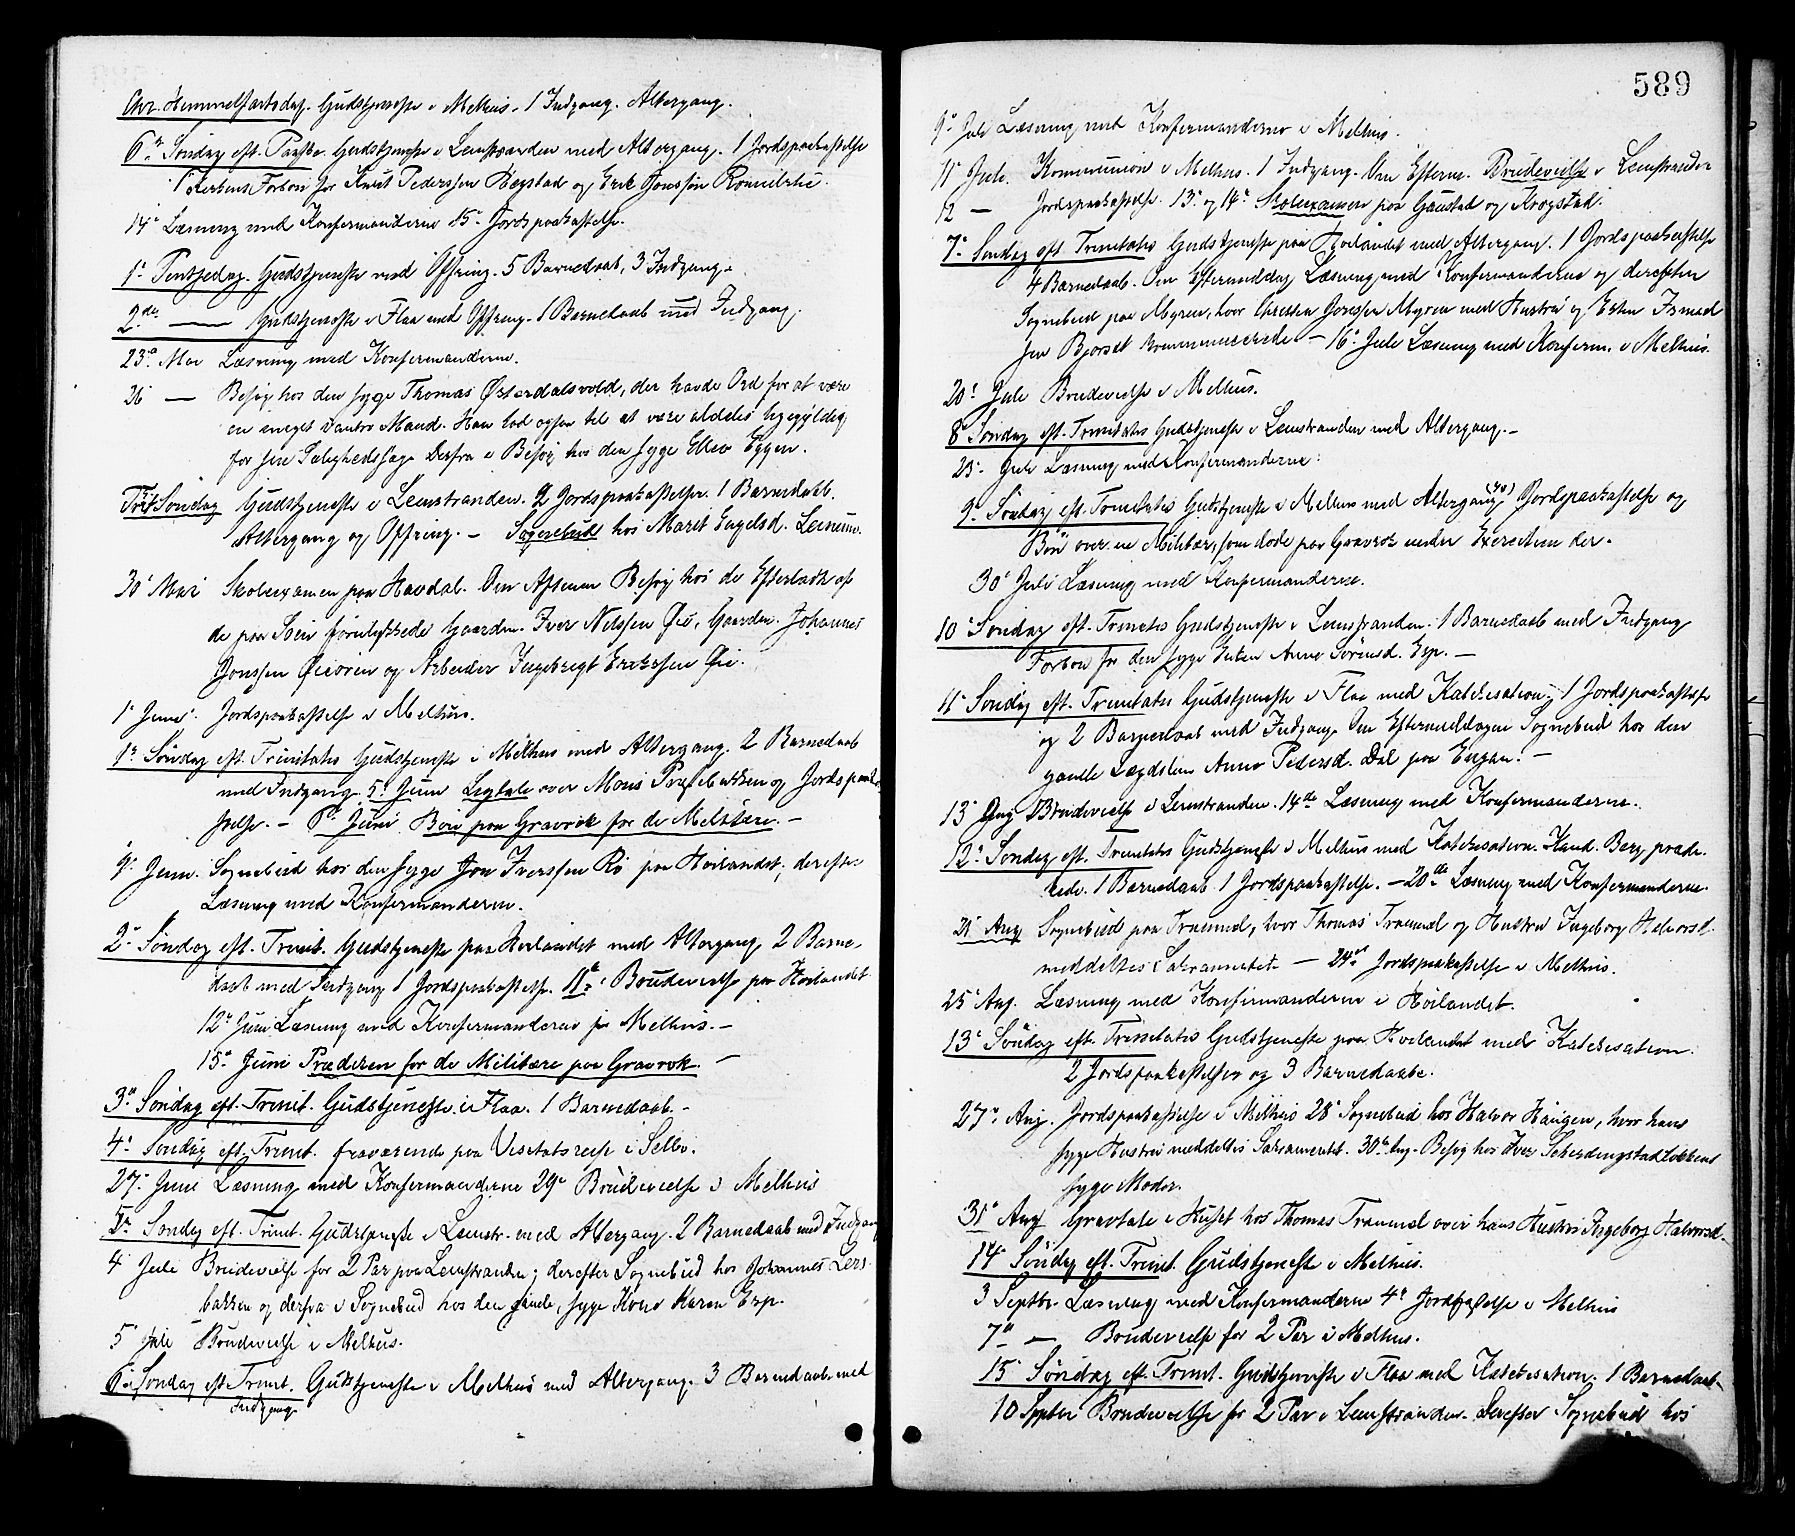 Chr. Hemmelfartsdag. Gudstjeneste i Melhus. 1 Indgang. Altergang.
6te Søndag eft. Paaske. Gudstjeneste i Leinstranden med Altergang. 1 Jordspaakastelse
1 Kirkens Forbøn for Knut Pederssen Hegstad og Erik Jonssøn
14de Læsning med Konfirmanderne 15de Jordspaakastelse.
1ste Pintsedag. Gudstjeneste med Offring. 5 Barnedaab, 3 Indgang.
2den — Gudstjeneste i Flaa med Offring. 1 Barnedaab med Indgang.
23de Mai Læsning med Konfirmanderne.
26 — Besøg hos den syge Thomas Østerdalsvold, der havde Ord for at være
en meget vantro Mand. Han lod ogsaa til at være aldeles ligegyldig
for sin Salighedssag. Derfra i Besøg hos den syge Ellev Eggen.
Trit. Søndag Gudstjeneste i Leinstranden. 2 Jordspaakastelser. 1 Barnedaab.
Altergang og Offring. — Sognebud hos Marit Engelsd.
30te Mai Skoleexamen paa Havdal. Om Aftenen Besøg hos de Efterladte af
de paa Søen forulykkede Gaardm. Iver Nilssen Øie, Gaardm. Johannes
Jonssen Øieøren og Arbeider Ingebrigt Erikssen Øie.
1ste Juni. Jordspaakastelse i Melhus.
1ste Søndag eft. Trinitatis Gudstjeneste i Melhus med Altergang. 2 Barnedaab
med Indgang. 5te Juni Ligtale over Mons Præstbakken og Jordspaaka-
stelse. — Juni Bøn paa Gravrok for de Militære. —
9de Juni. Sognebud hos den syge Jon Iverssen Rø paa Høilandet, derefter
Læsning med Konfirmanderne.
2den Søndag eft. Trinit. Gudstjeneste paa Høilandet med Altergang 2 Barne-
daab med Indgang 1 Jordspaakastelse. 11te Brudevielse paa Høilandet
12te Juni Læsning med Konfirmanderne paa Melhus. —
15de Juni Præderen for de Militære paa Gravrok. —
3die Søndag eft. Trinit. Gudstjeneste i Flaa. 1 Barnedaab. —
4de Søndag eft. Trinit. fraværende paa Visitatsreise i Selbo.
27de Juni Læsning med Konfirmanderne 29de Brudevielse i Melhus
5te Søndag eft. Trinit. Gudstjeneste i Leinstr. med Altergang. 2 Barnedaab med Indgang
4 Juli Brudevielse for 2 Par paa Leinstranden; derefter Sognebud hos Johannes Lers-
bakken og derfra i Sognebud hos den gamle, syge Kone Karen Esp.
5te Juli Brudevielse i Melhus.
6te Søndag eft. Trinit. Gudstjeneste i Melhus med Altergang. 3 Barnedaab med
Indgang
589
9de Juli Læsning med Konfirmanderne i Melhus.
11te Juli. Kommunion i Melhus. 1 Indgang. Om Efterm. Brudevielse i Leinstranden
12 — Jordspaakastelse. 13de og 14de Skoleexamen paa Gaustad og Krogstad.
7de Søndag eft. Trinitatis Gudstjeneste paa Høilandet med Altergang. 1 Jordspaakastelse
4 Barnedaab. Om Eftermiddag Læsning med Konfirmanderne og derefter
Sognebud paa Myren, hvor Christen Myren med Hustru og Esten
sen Bjørset kommunicerede — 16de Juli Læsning med Konfirm. i Melhus.
20de Juli Brudevielse i Melhus.
8 Søndag eft. Trinitatis Gudstjeneste i Leinstranden med Altergang. —
23de Juli Læsning med Konfirmanderne.
9de Søndag eft. Trinitatis Gudstjeneste i Melhus med Altergang, Jordspaakastelse og
Bøn over en Militær, som døde paa Gravrok under Exercitien der.
30te Juli Læsning med Konfirmanderne.
10de Søndag eft. Trinitatis Gudstjeneste i Leinstranden. 1 Barnedaab med Indgang
Forbøn for den syge Enken Anne Sørensd. Esp. —
11te Søndag eft. Trinitatis Gudstjeneste i Flaa med Katekisation. 1 Jordspaakastelse
og 2 Barnedaab med Indgang. Om Eftermiddagen Sognebud hos den
gamle Lægdslem Anne Pedersd. Dal paa Engan. —
13 Aug Brudevielse i Leinstranden. 14de Læsning med Konfirmanderne.
12te Søndag eft. Trinitatis Gudstjeneste i Melhus med Katekisation. Kand. Berg præde-
kede. 1 Barnedaab 1 Jordspaakastelse. — 20de Læsning med Konfirmanderne.
21 Aug Sognebud paa Tranmel, hvor Thomas Tranmel og Hustru Ingeborg Halvorsd.
meddeltes Sakramentet — 24de Jordspaakastelse i Melhus.
25de Aug. Læsning med Konfirmanderne i Høilandet.
13de Søndag eft. Trinitatis Gudstjeneste paa Høilandet med Katekisation.
2 Jordspaakastelser og 3 Barnedaab.
27de Aug. Jordspaakastelse i Melhus 28de Sognebud hos Halvor Haugen, hvor hans
syge Hustru meddeltes Sakramentet. 30te Aug. Besøg hos Iver
syge Moder.
31te Aug Gravtale i Huset hos Thomas Tranmel over hans Hustru Ingeborg Halvorsd.
14de Søndag eft. Trinit. Gudstjeneste i Melhus.
3 Septbr. Læsning med Konfirmanderne 4de Jordfæstelse i Melhus
7de — Brudevielse for 2 Par i Melhus.
15de Søndag eft. Trinit. Gudstjeneste i Flaa med Katekisation. 1 Barnedaab.
10 Septbr Brudevielse for 2 Par i Leinstranden. Derefter Sognebud hos